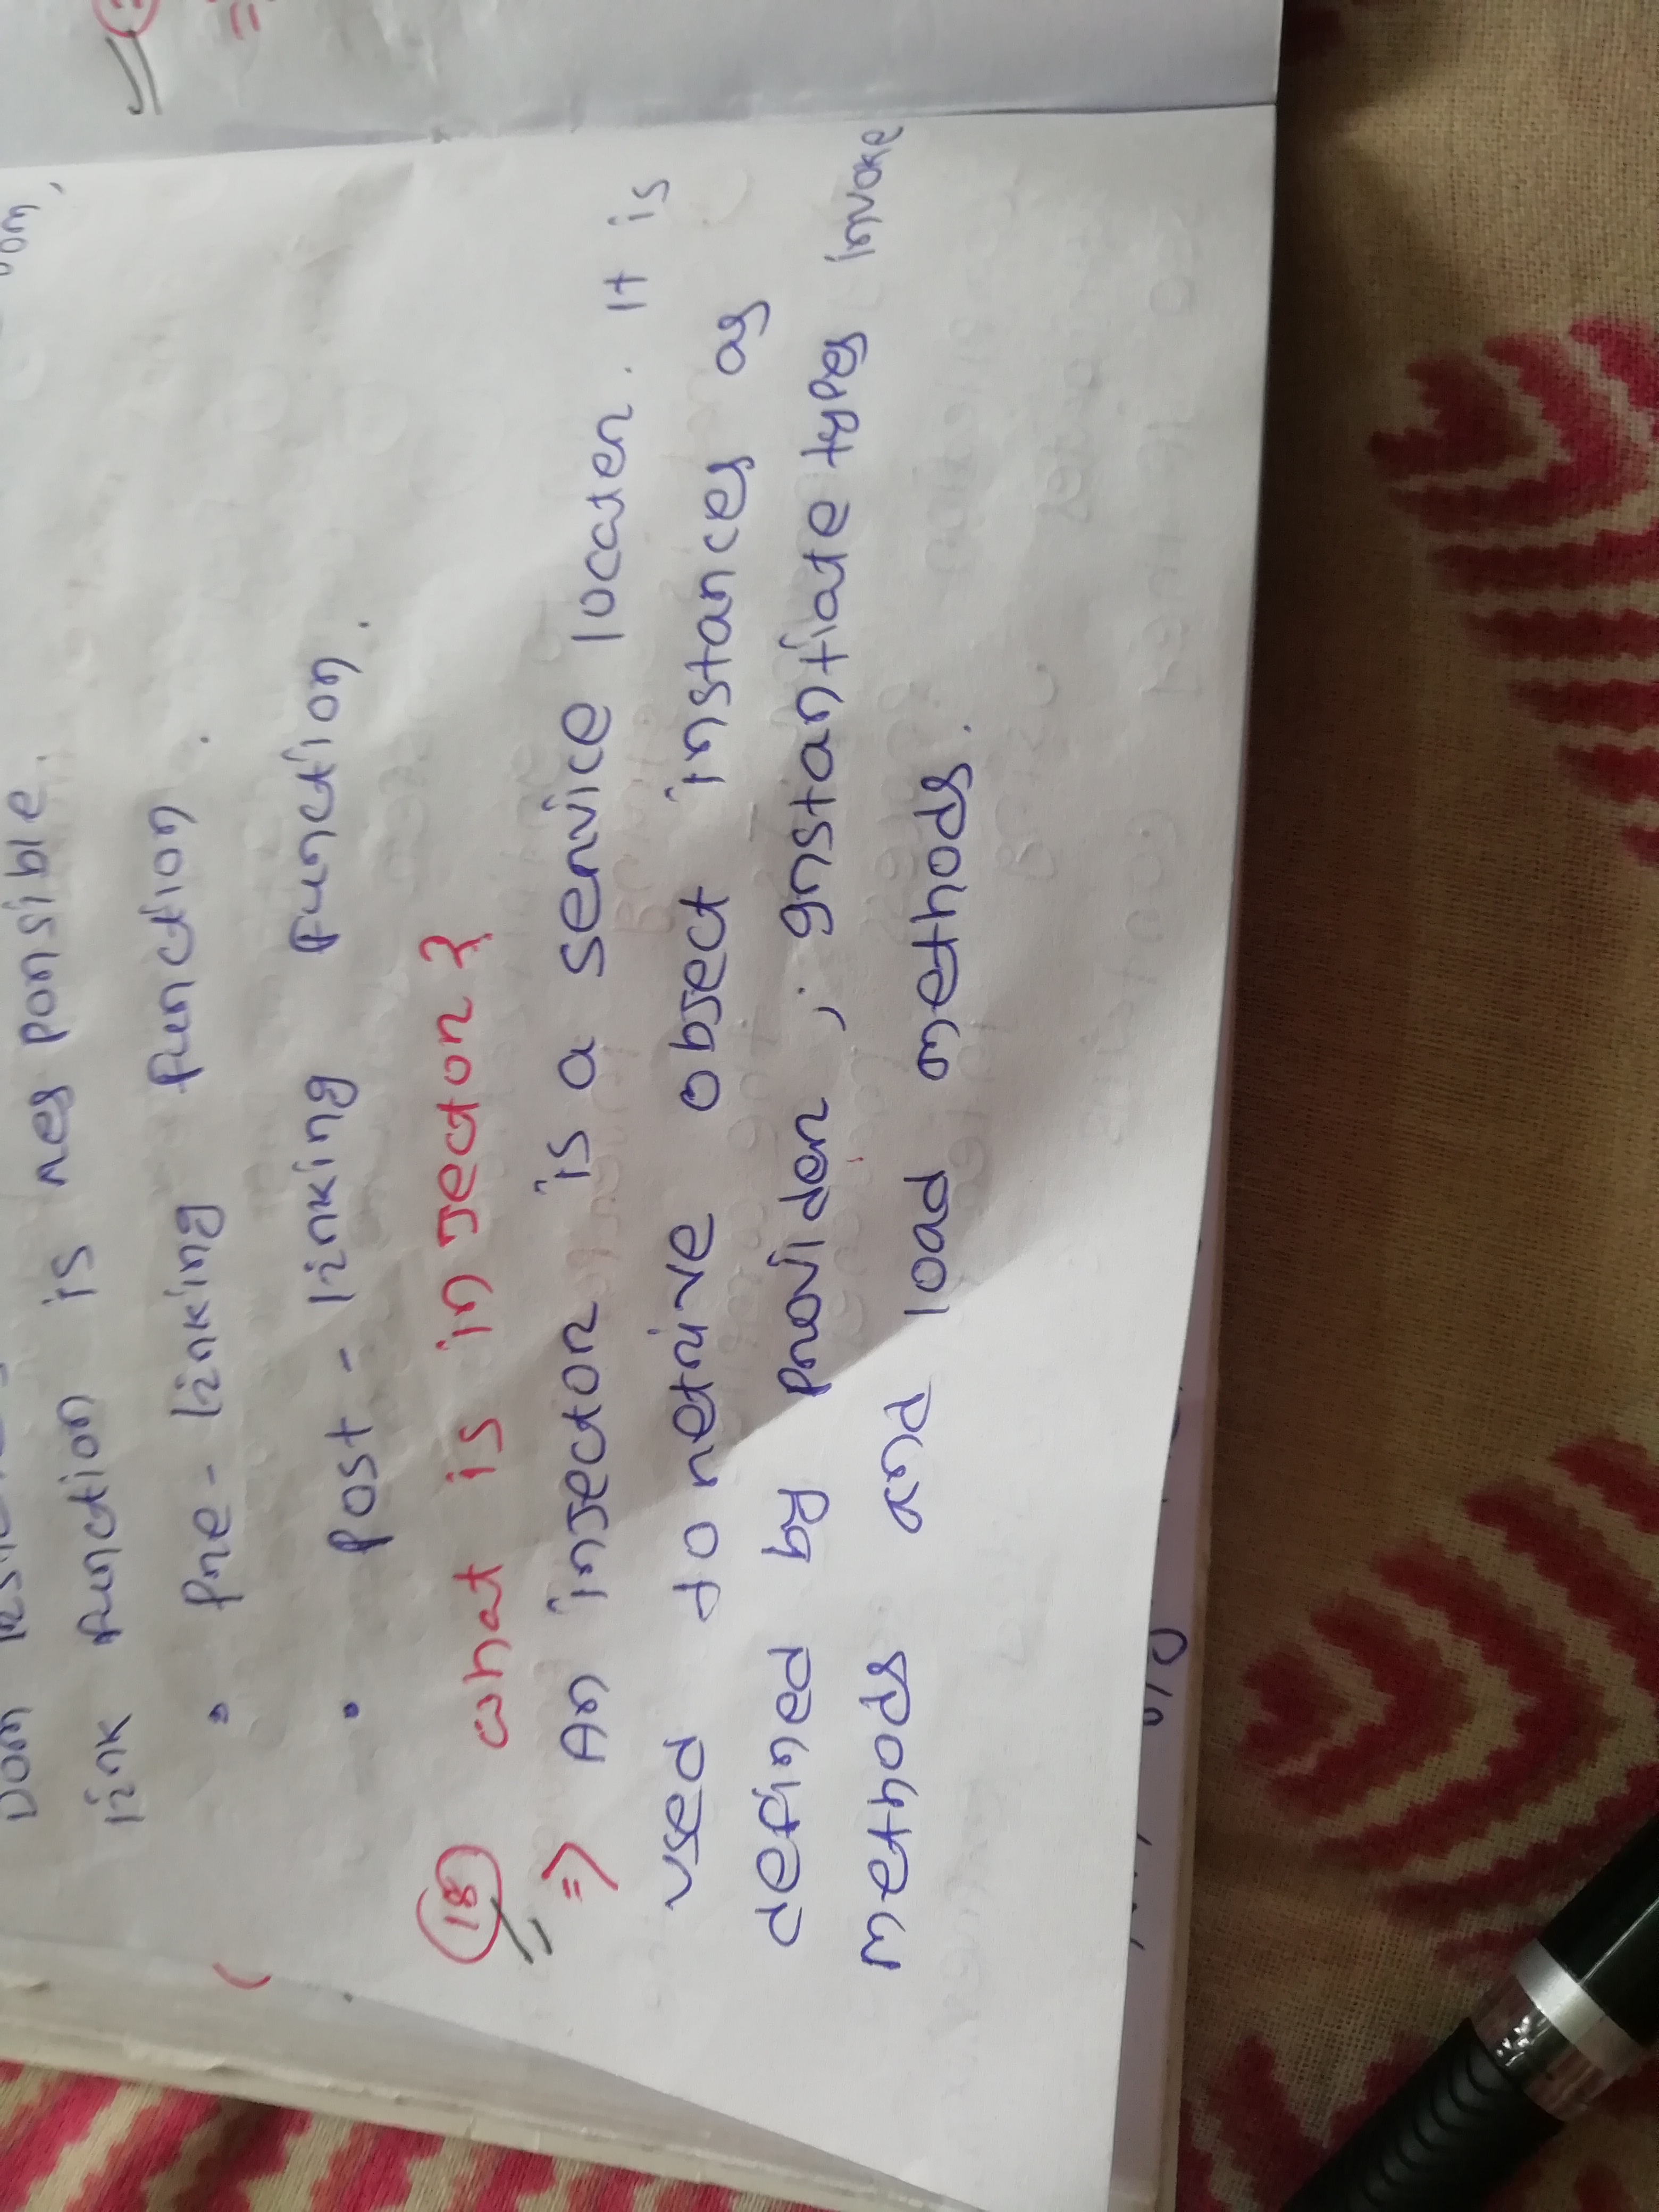 Dom
Dom,
link function is responsible.
• Pre - linking function.
• Post - linking function.
18 What is injector?
=> An injector is a service locater. It is
used to retrive object instances as
defined by provider, Instantiate types invoke
methods and load methods.